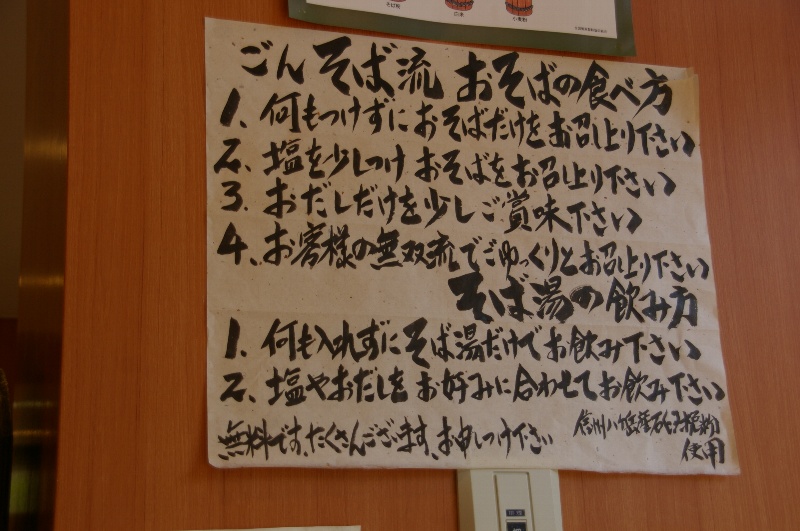 そば粉
白米
小麦粉
ごんそば流 おそばの食べ方
1、何もつけずにおそばだけをお召し上り下さい
2、塩を少しつけおそばをお召し上り下さい
3、おだしだけを少しご賞味下さい
4、お客様の無双流でごゆっくりとお召し上り下さい
そば湯の飲み方
1、何も入れずにそば湯だけでお飲み下さい
2、塩やおだしをお好みに合わせてお飲み下さい
無料です、たくさんございます、お申しつけ下さい
信州八ヶ岳産石臼挽粉
使用